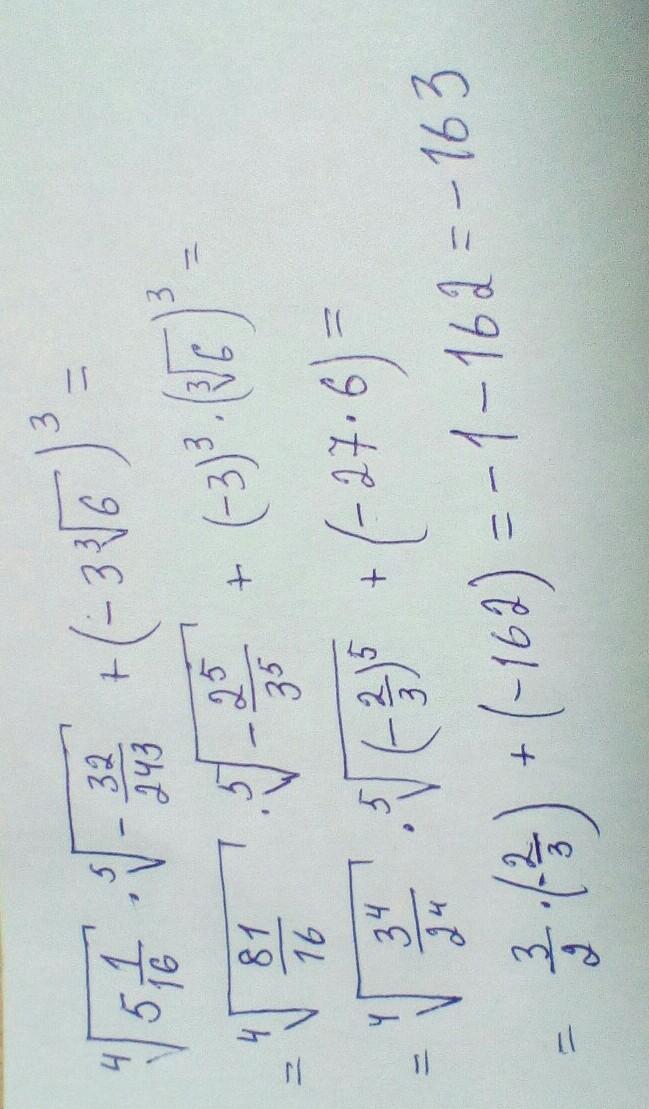 ⁴√(5 1/16) · ⁵√(-32/243) + (-3∛6)³ =
= ⁴√(81/16) · ⁵√(-2⁵/3⁵) + (-3)³ · (∛6)³ =
= ⁴√(3⁴/2⁴) · ⁵√((-2/3)⁵) + (-27·6) =
= 3/2 · (-2/3) + (-162) = -1-162 = -163